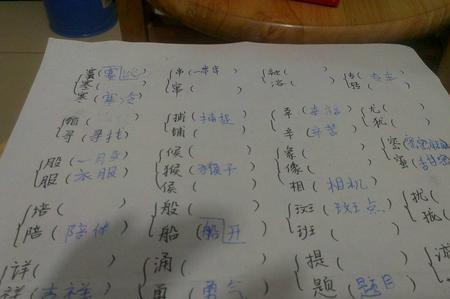 寒(寒冷
串(一串串
牢(
浴(
寻(寻找
捕(捕捉
铺(
幸(幸福
辛(辛苦
尤(
犹(
股(一股
服(衣服
候(
猴(猴子
侯(
象(
像(
相(相机
培(
陪(陪伴
般(
船(船开
斑(斑点
班(
扰(
拢(
详(
祥(吉祥
涌(
勇(勇气
提(
题(题目